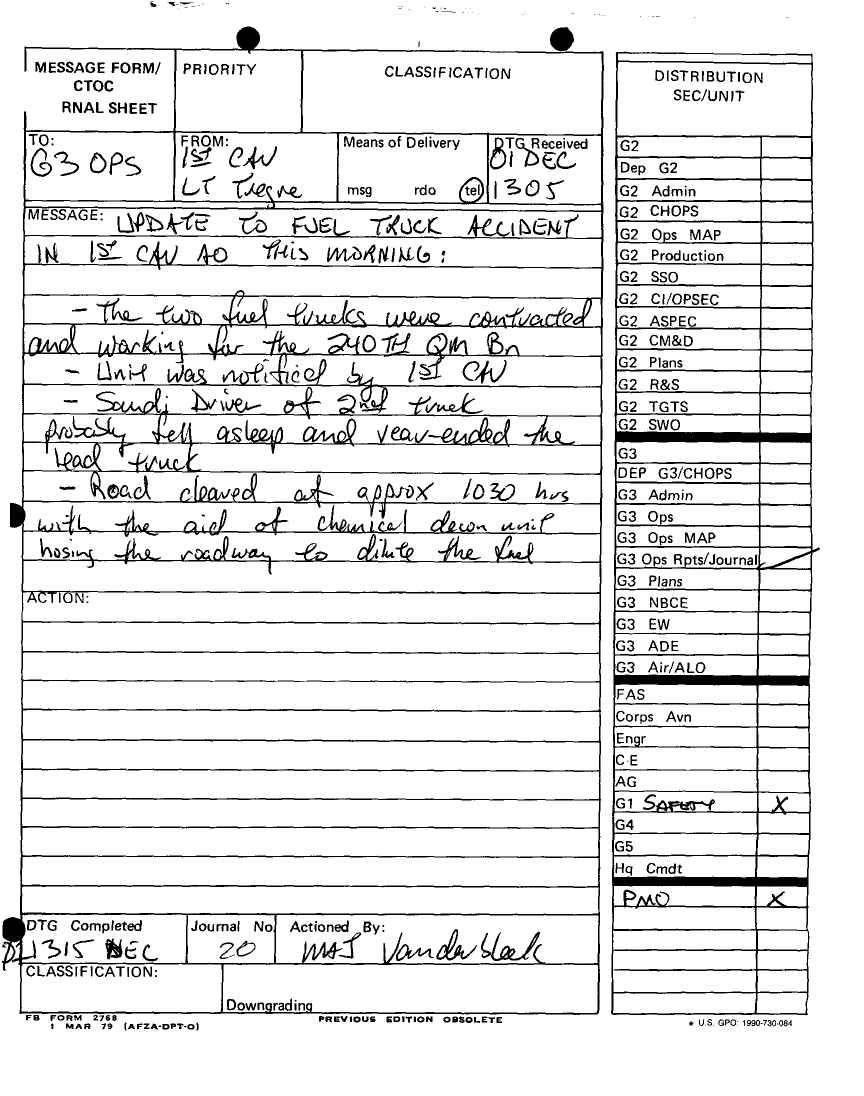 MESSAGE FORM/
CTOC
RNAL SHEET
PRIORITY
CLASSIFICATION
TO:
G3 OPS
FROM:
1ST CAV
LT Tregre
Means of Delivery
msg rdo tel
DTG Received
01 DEC
1305
MESSAGE: UPDATE TO FUEL TRUCK ACCIDENT
IN 1ST CAV AO THIS MORNING:
- The two fuel trucks were contracted
and working for the 240TH QM Bn
- Unit was notified by 1ST CAV
- Saudi Driver of 2nd truck
probably fell asleep and rear-ended the
lead truck
- Road cleared at approx 1030 hrs
with the aid of chemical decon unit
hosing the roadway to dilute the fuel
ACTION:
DTG Completed
1315 DEC
Journal No
20
Actioned By:
MAJ Vanderbleek
CLASSIFICATION:
Downgrading
FB FORM 2768
1 MAR 79 (AFZA-DPT-O)
PREVIOUS EDITION OBSOLETE
DISTRIBUTION
SEC/UNIT
G2
Dep G2
G2 Admin
G2 CHOPS
G2 Ops MAP
G2 Production
G2 SSO
G2 CI/OPSEC
G2 ASPEC
G2 CM&D
G2 Plans
G2 R&S
G2 TGTS
G2 SWO
G3
DEP G3/CHOPS
G3 Admin
G3 Ops
G3 Ops MAP
G3 Ops Rpts/Journal
G3 Plans
G3 NBCE
G3 EW
G3 ADE
G3 Air/ALO
FAS
Corps Avn
Engr
C-E
AG
G1 SAFETY X
G4
G5
Hq Cmdt
PMO X
* U.S. GPO: 1990-730-084